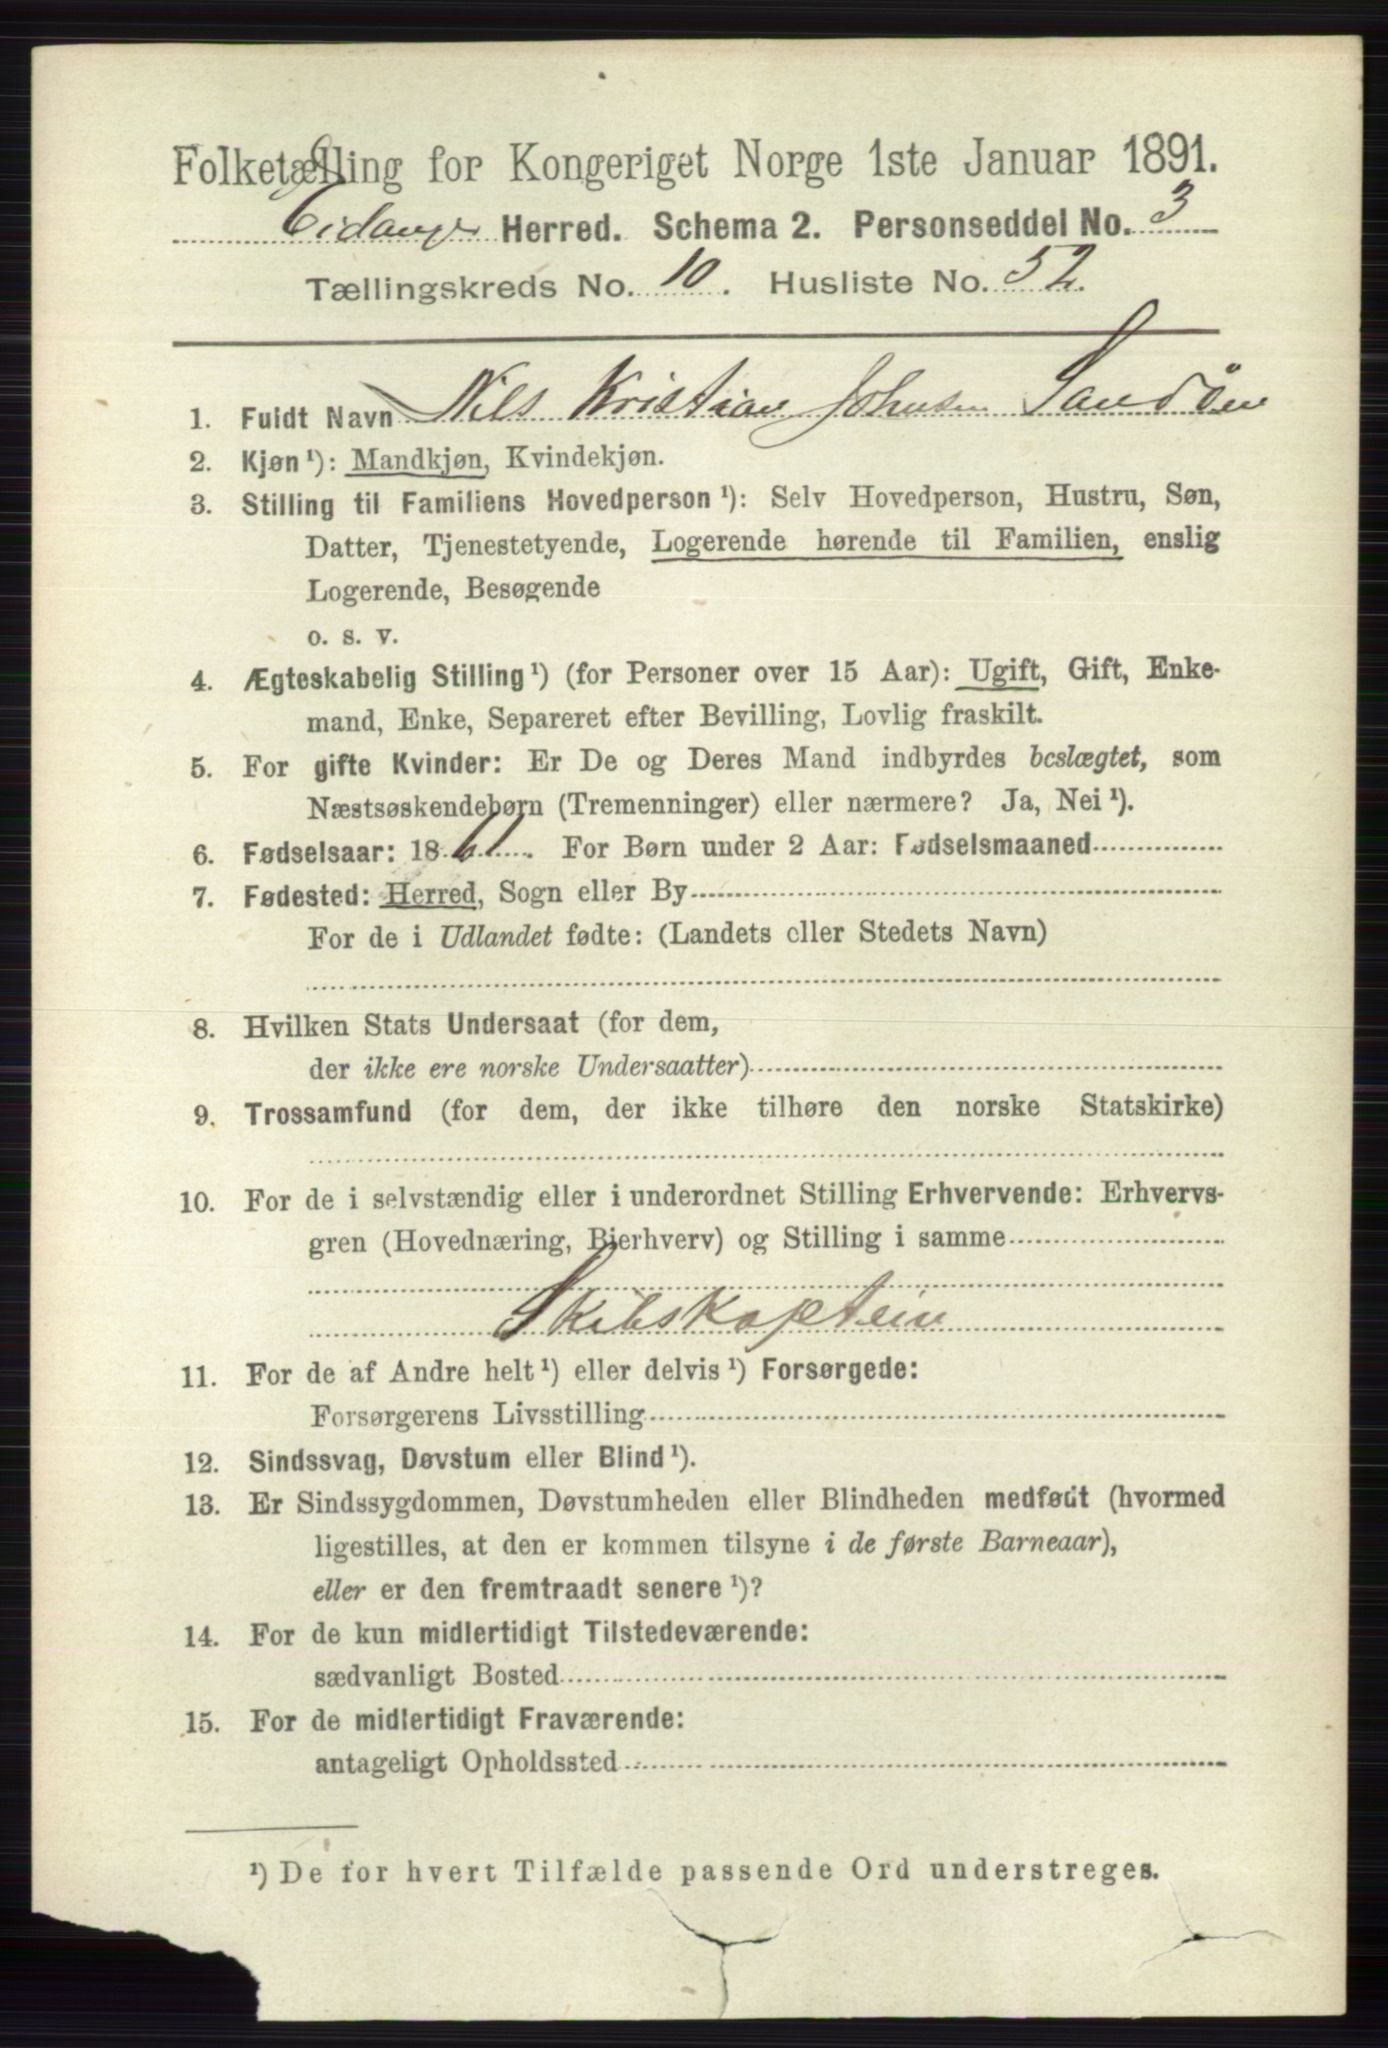 Folketælling for Kongeriget Norge 1ste Januar 1891.
Eidanger Herred. Schema 2. Personseddel No. 3
Tællingskreds No. 10. Husliste No. 52.
1. Fuldt Navn Nils Kristian Johnsen Sandöen
2. Kjøn ¹): Mandkjøn, Kvindekjøn.
3. Stilling til Familiens Hovedperson ¹): Selv Hovedperson, Hustru, Søn,
Datter, Tjenestetyende, Logerende hørende til Familien, enslig
Logerende, Besøgende
o. s. v.
4. Ægteskabelig Stilling ¹) (for Personer over 15 Aar): Ugift, Gift, Enke-
mand, Enke, Separeret efter Bevilling, Lovlig fraskilt.
5. For gifte Kvinder: Er De og Deres Mand indbyrdes beslægtet, som
Næstsøskendebørn (Tremenninger) eller nærmere? Ja, Nei ¹).
6. Fødselsaar: 1861. For Børn under 2 Aar: Fødselsmaaned
7. Fødested: Herred, Sogn eller By
For de i Udlandet fødte: (Landets eller Stedets Navn)
8. Hvilken Stats Undersaat (for dem,
der ikke ere norske Undersaatter)
9. Trossamfund (for dem, der ikke tilhøre den norske Statskirke)
10. For de i selvstændig eller i underordnet Stilling Erhvervende: Erhvervs-
gren (Hovednæring, Bierhverv) og Stilling i samme
Skibskaptein
11. For de af Andre helt ¹) eller delvis ¹) Forsørgede:
Forsørgerens Livsstilling
12. Sindssvag, Døvstum eller Blind ¹).
13. Er Sindssygdommen, Døvstumheden eller Blindheden medfødt (hvormed
ligestilles, at den er kommen tilsyne i de første Barneaar),
eller er den fremtraadt senere ¹)?
14. For de kun midlertidigt Tilstedeværende:
sædvanligt Bosted
15. For de midlertidigt Fraværende:
antageligt Opholdssted
¹) De for hvert Tilfælde passende Ord understreges.